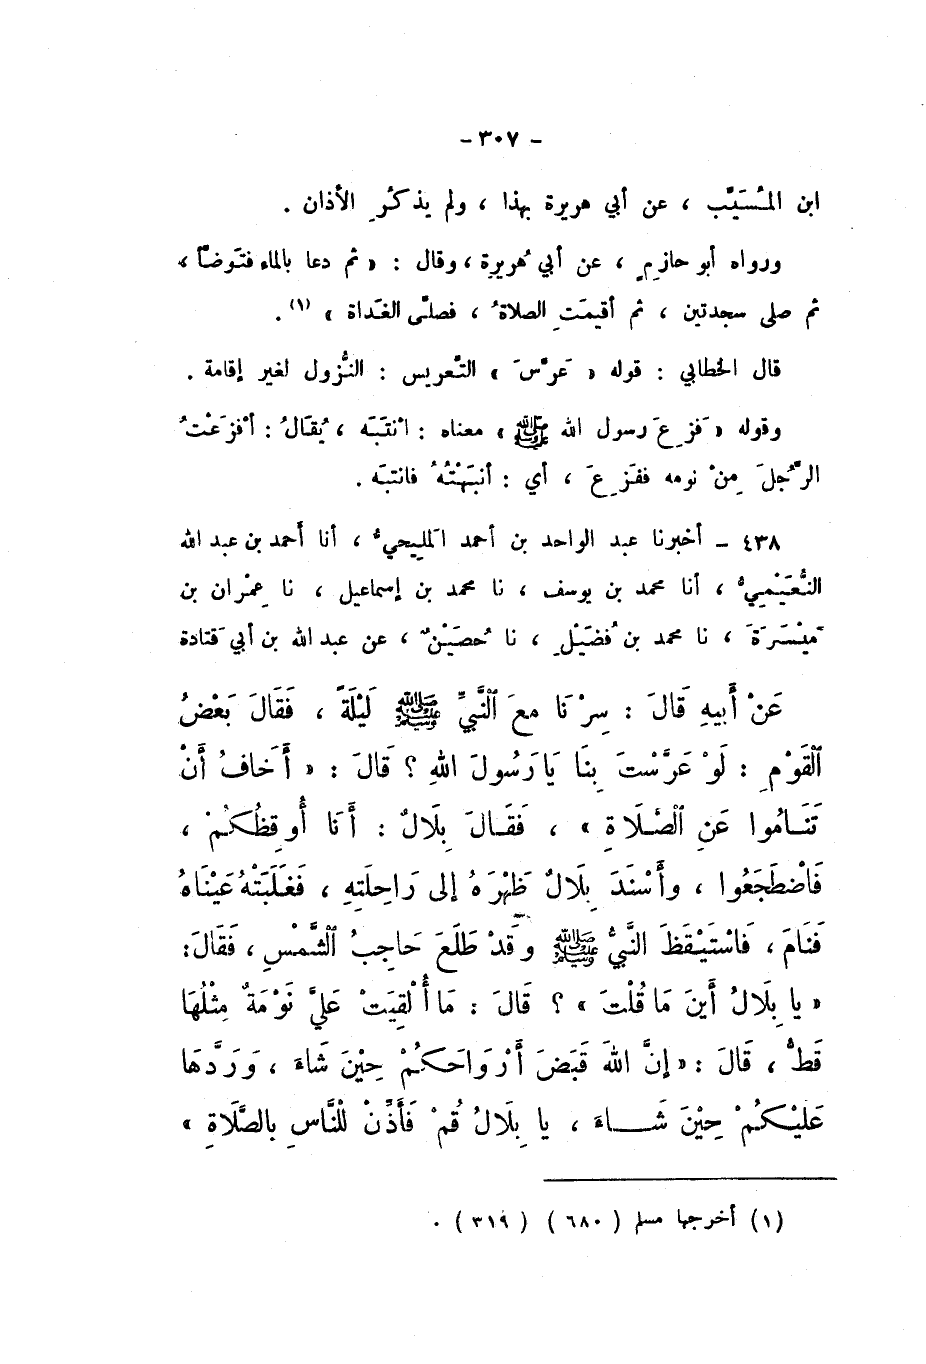 - ٣٠٧ -
ابن المُسَيَّب ، عن أبي هريرة بهذا ، ولم يذكُرِ الأذان .
ورواه أبو حازِمٍ ، عن أبي هُريرة ، وقال : « ثم دعا بالماء فتَوضَّأ ،
ثم صلى سجدتين ، ثم أقيمَتِ الصلاةُ ، فصلَّى الغَداة » (١) .
قال الخطابي : قوله « عَرَّسَ » التَّعريس : النُّزول لغير إقامة .
وقوله « فَزِعَ رسول الله ﷺ » معناه : انْتَبَه ، يُقالُ : أَفْزَعْتُ
الرَّجُلَ مِنْ نومه ففَزِعَ ، أي : أنبَهْتُهُ فانتبَه .
٤٣٨ - أخبرنا عبد الواحد بن أحمد المَلِيحيُّ ، أنا أَحمد بن عبد الله
النُّعَيْمِيُّ ، أنا محمد بن يوسف ، نا محمد بن إسماعيل ، نا عِمْران بن
مَيْسَرَةَ ، نا محمد بن فُضَيْلٍ ، نا حُصَيْنٌ ، عن عبد الله بن أبي قَتادة
عَنْ أَبِيهِ قَالَ : سِرْنَا معَ ٱلنَّبِيِّ ﷺ لَيْلَةً ، فَقَالَ بَعْضُ
ٱلْقَوْمِ : لَوْ عَرَّسْتَ بِنَا يَا رَسُولَ اللهِ ؟ قَالَ : « أَخَافُ أَنْ
تَنَامُوا عَنِ ٱلصَّلَاةِ » ، فَقَالَ بِلَالٌ : أَنَا أُوقِظُكُمْ ،
فَاضْطَجَعُوا ، وأَسْنَدَ بِلَالٌ ظَهْرَهُ إلى رَاحِلَتِهِ ، فَغَلَبَتْهُ عَيْنَاهُ
فَنَامَ ، فَاسْتَيْقَظَ النَّبِيُّ ﷺ وقَدْ طَلَعَ حَاجِبُ ٱلشَّمْسِ ، فَقَالَ :
« يا بِلَالُ أَينَ مَا قُلْتَ » ؟ قَالَ : مَا أُلْقِيَتْ عَلَيَّ نَوْمَةٌ مِثْلُهَا
قَطُّ ، قَالَ : « إنَّ اللهَ قَبَضَ أَرْوَاحَكُمْ حِيْنَ شَاءَ ، وَرَدَّهَا
عَلَيْكُمْ حِيْنَ شَاءَ ، يا بِلَالُ قُمْ فَأَذِّنْ لِلنَّاسِ بِالصَّلَاةِ »
(١) أخرجها مسلم ( ٦٨٠ ) ( ٣١٩ ) .